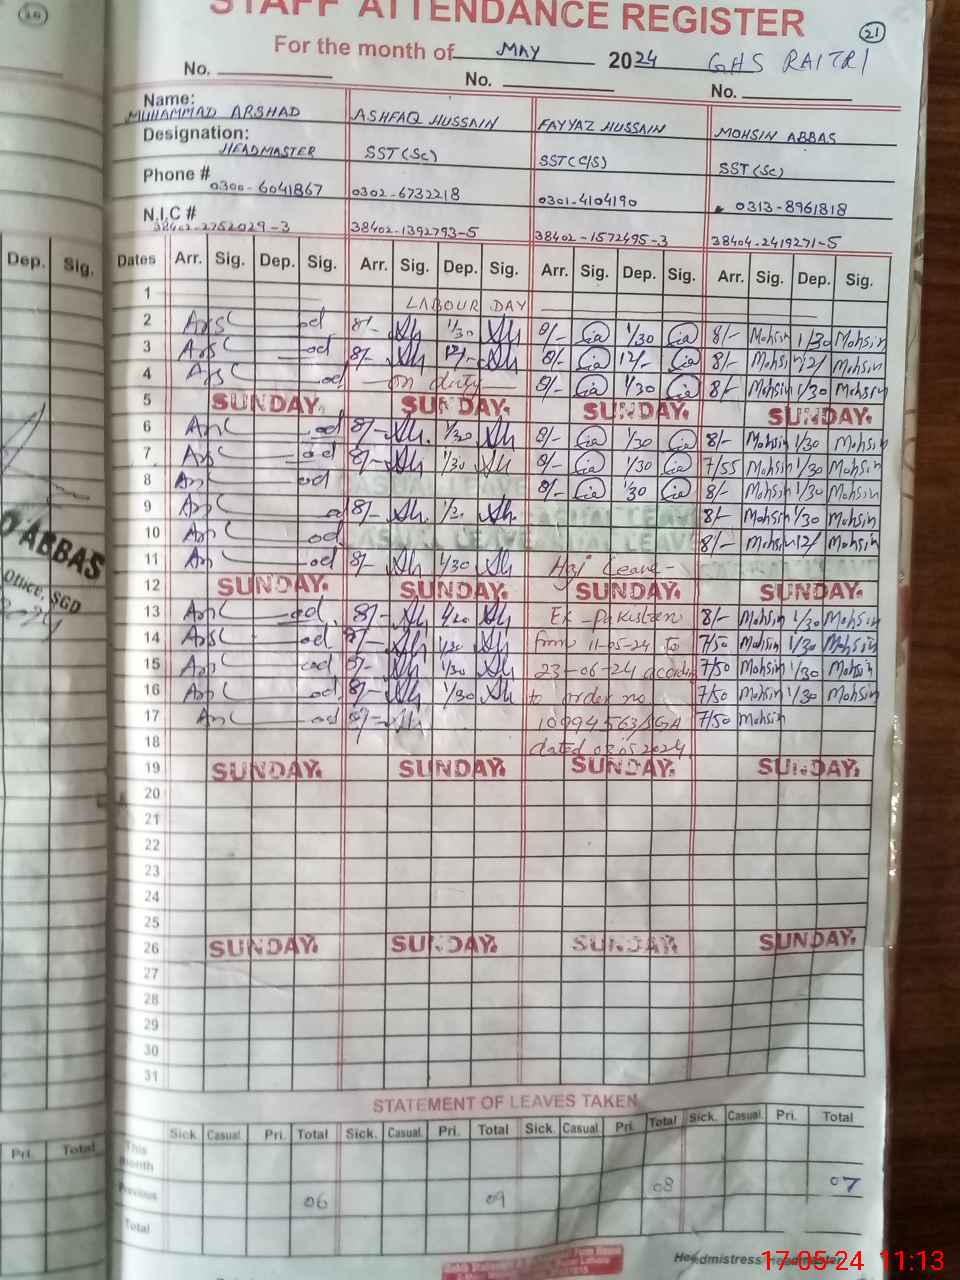 STAFF ATTENDANCE REGISTER
21
For the month of MAY 2024 GHS RAITRI
No. No. No.
Name: MUHAMMAD ARSHAD ASHFAQ HUSSAIN FAYYAZ HUSSAIN MOHSIN ABBAS
Designation: HEADMASTER SST(Sc) SST(C/S) SST(Sc)
Phone # 0300-6041867 0302-6732218 0301-4104190 0313-8961818
N.I.C # 38402-2752029-3 38402-1392793-5 38402-1572495-3 38404-2419271-5
Dep. Sig. Dates Arr. Sig. Dep. Sig. Arr. Sig. Dep. Sig. Arr. Sig. Dep. Sig. Arr. Sig. Dep. Sig.
1 LABOUR DAY
2 8/- 1/30 8/- 1/30 8/- Mohsin 1/30 Mohsin
3 8/- 12/- 8/- 12/- 8/- Mohsin 12/ Mohsin
4 on duty 8/- 1/30 8/- Mohsin 1/30 Mohsin
5 SUNDAY. SUNDAY. SUNDAY. SUNDAY.
6 8/- 1/30 8/- 1/30 8/- Mohsin 1/30 Mohsin
7 8/- 1/30 8/- 1/30 7/55 Mohsin 1/30 Mohsin
8 CASUAL LEAVE 8/- 1/30 8/- Mohsin 1/30 Mohsin
9 8/- 1/30 CASUAL LEAVE 8/- Mohsin 1/30 Mohsin
10 CASUAL LEAVE CASUAL LEAVE 8/- Mohsin 12/ Mohsin
11 8/- 1/30 Haj Leave- CASUAL LEAVE
12 SUNDAY. SUNDAY. SUNDAY. SUNDAY.
13 8/- Ex-Pakistan 8/- Mohsin 1/30 Mohsin
14 1/30 from 11-05-24 to 7/50 Mohsin 1/30 Mohsin
15 8/- 1/30 23-06-24 7/50 Mohsin 1/30 Mohsin
16 8/- 1/30 to order no 7/50 Mohsin 1/30 Mohsin
17 8/- 10994563/SGA 7/50 Mohsin
18 dated 03.05.2024
19 SUNDAY. SUNDAY. SUNDAY. SUNDAY.
20
21
22
23
24
25
26 SUNDAY. SUNDAY. SUNDAY. SUNDAY.
27
28
29
30
31
ABBAS
Office, SGD
STATEMENT OF LEAVES TAKEN
Pri. Total Sick Casual Pri. Total Sick. Casual. Pri. Total Sick. Casual Pri. Total Sick. Casual. Pri. Total
This month
Previous 06 09 08 07
Total
Headmistress Headmaster
17-05-24 11:13